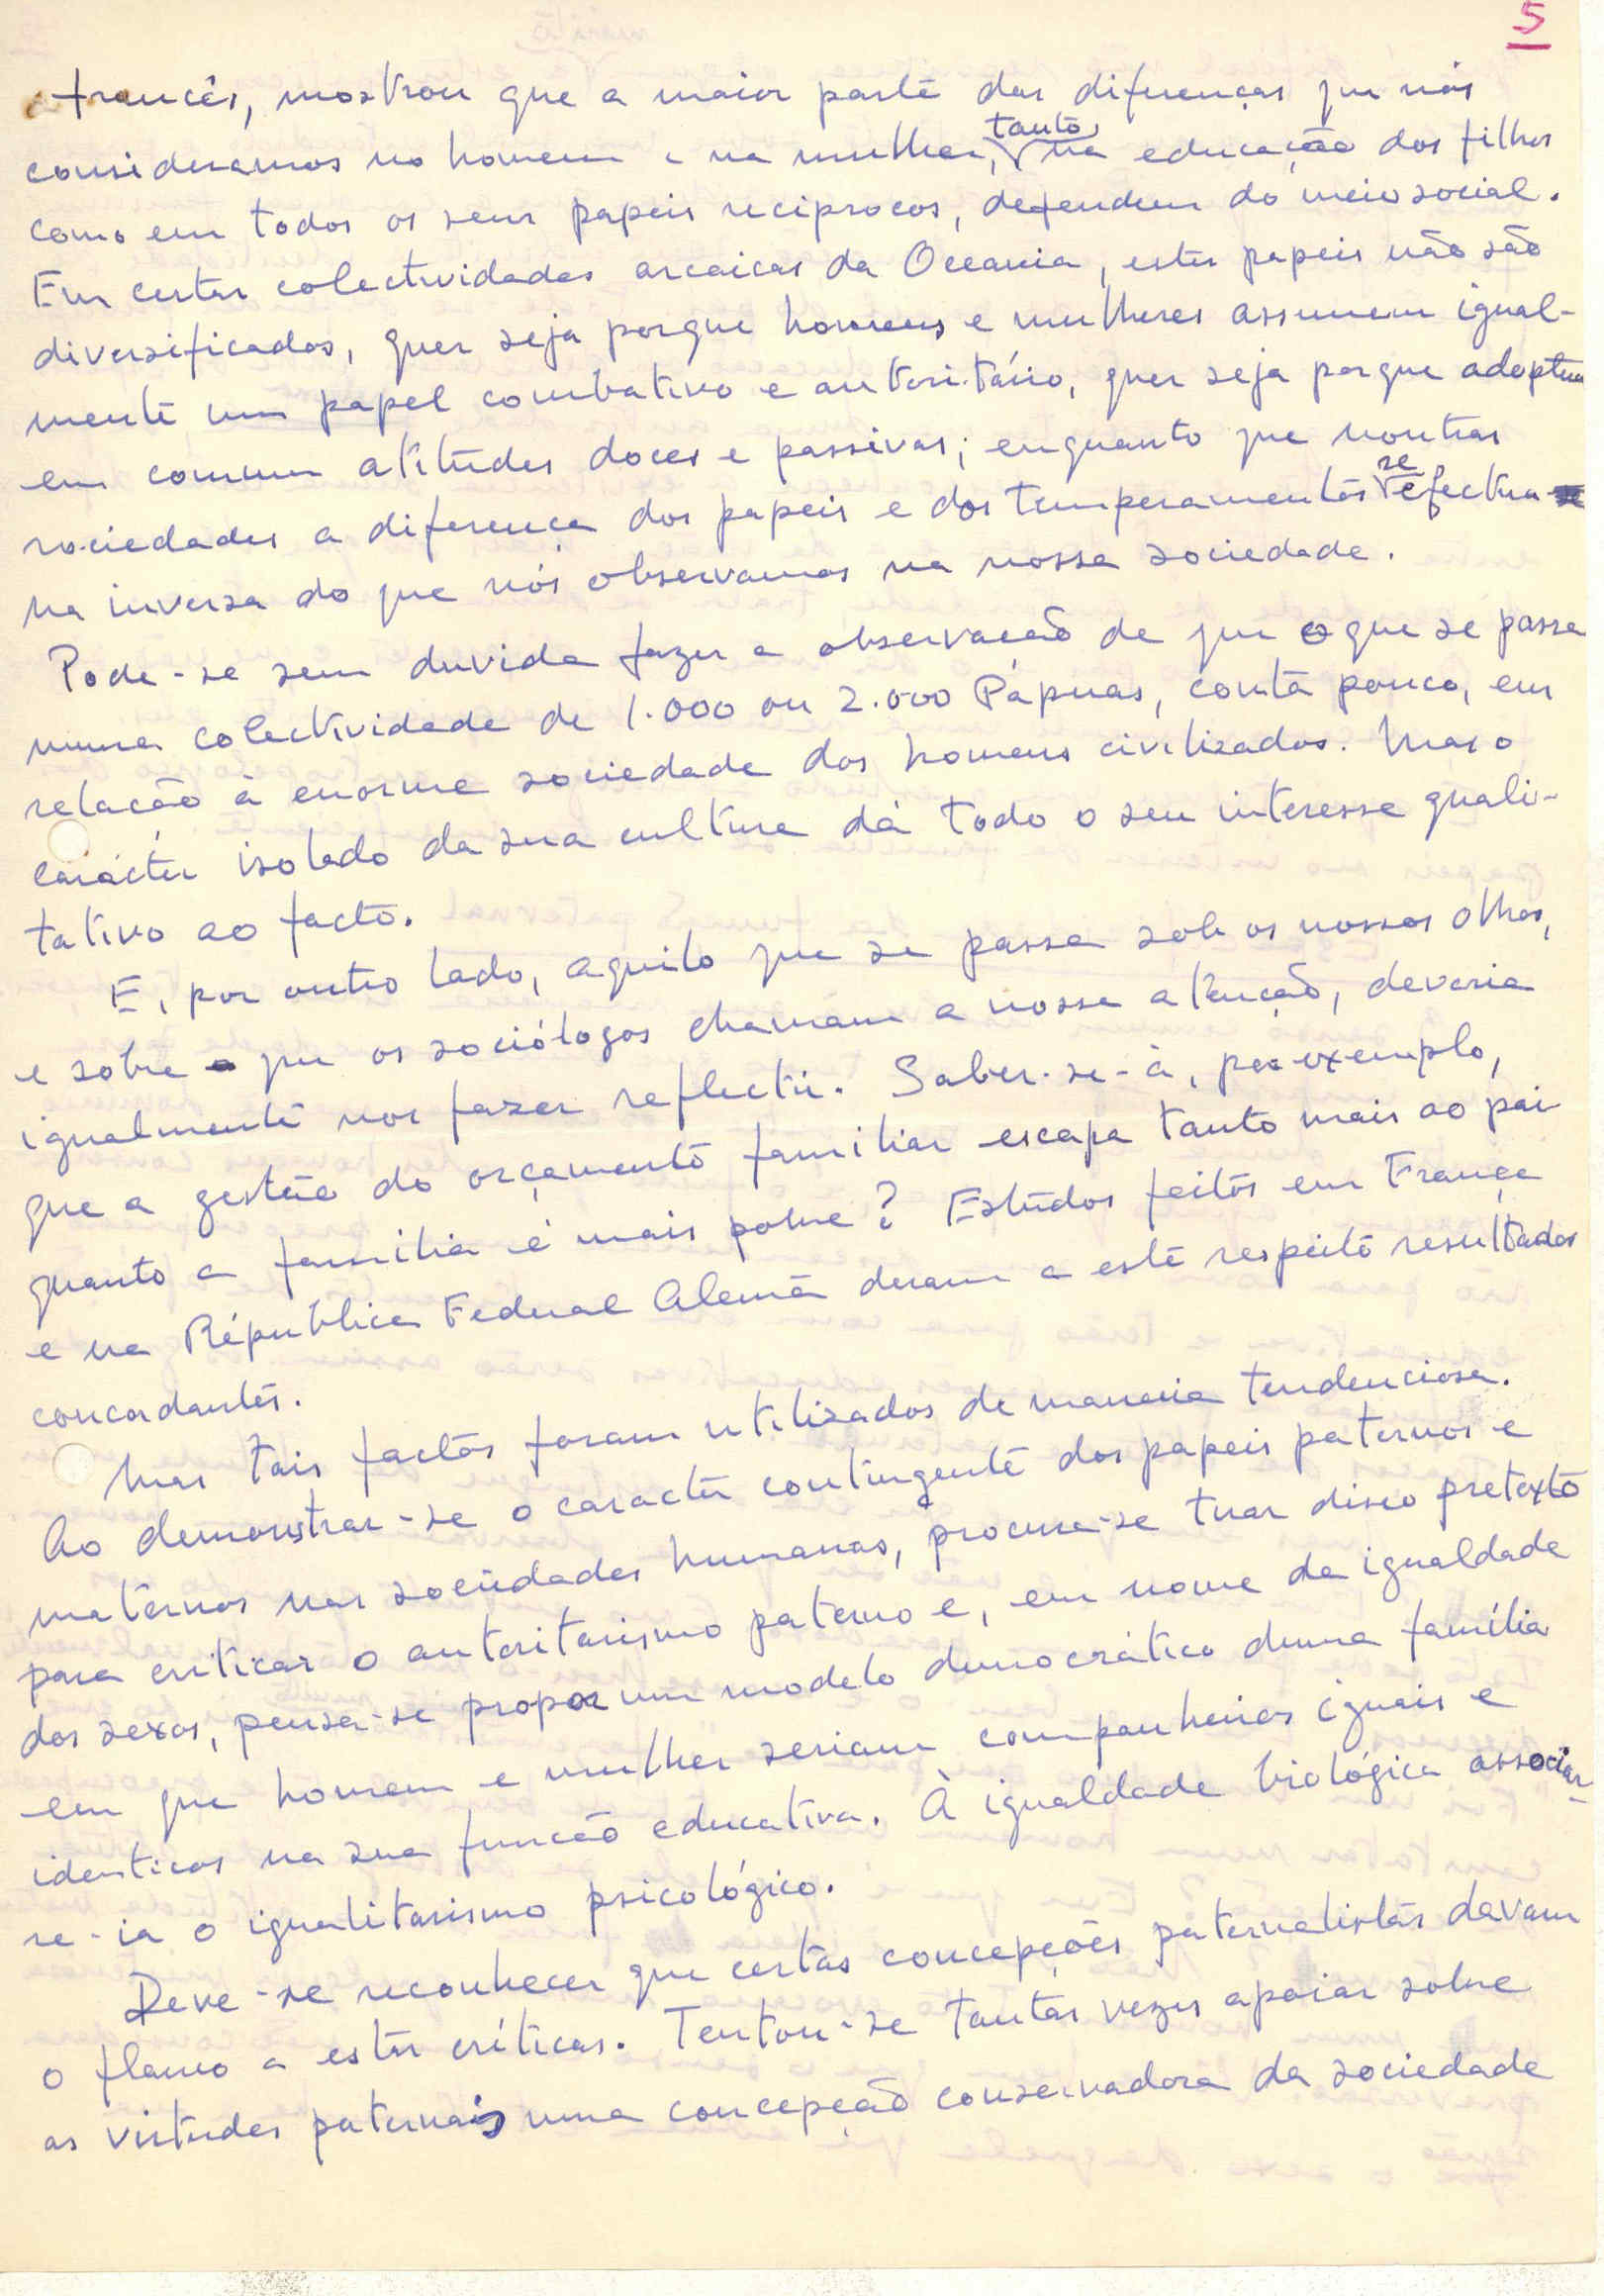 5
francês, mostrou que a maior parte das diferenças que nós
consideramos no homem e na mulher, tanto na educação dos filhos
como em todos os seus papeis reciprocos, dependem do meio social.
Em certas colectividades arcaicas da Oceania, estes papeis não são
diversificados, quer seja porque homens e mulheres assumem igual-
mente um papel combativo e autoritário, quer seja porque adoptem
em comum atitudes doces e passivas; enquanto que noutras
sociedades a diferença dos papeis e dos temperamentos se efectua
na inversa do que nós observamos na nossa sociedade.
Pode-se sem duvida fazer a observação de que o que se passa
numa colectividade de 1.000 ou 2.000 Pápuas, conta pouco, em
relação à enorme sociedade dos homens civilizados. Mas o
carácter isolado da sua cultura dá todo o seu interesse quali-
tativo ao facto.
E, por outro lado, aquilo que se passa sob os nossos olhos,
e sobre que os sociólogos chamam a nossa atenção, deveria
igualmente nos fazer reflectir. Saber-se-à, por exemplo,
que a gestão do orçamento familiar escapa tanto mais ao pai
quanto a familia é mais pobre? Estudos feitos em França
e na Républica Federal Alemã deram a este respeito resultados
concordantes.
Mas tais factos foram utilizados de maneira tendenciosa.
Ao demonstrar-se o caracter contingente dos papeis paternos e
maternos nas sociedades humanas, procura-se tirar disso pretexto
para criticar o autoritarismo paterno e, em nome da igualdade
dos sexos, pensa-se propor um modelo democrático duma família
em que homem e mulher seriam companheiros iguais e
identicos na sua função educativa. À igualdade biológica associar-
se-ia o igualitarismo psicológico.
Deve-se reconhecer que certas concepções paternalistas davam
o flanco a estas críticas. Tentou-se tantas vezes apoiar sobre
as virtudes paternais uma concepção conservadora da sociedade